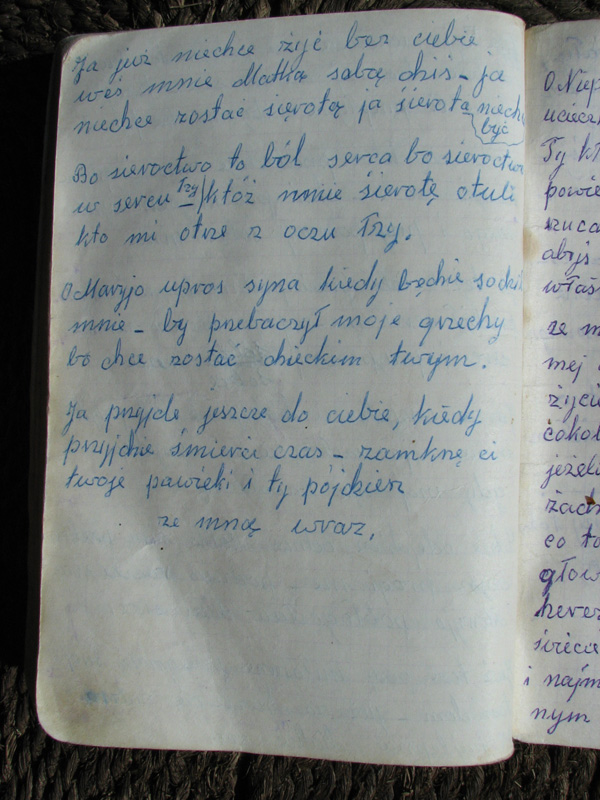 Ja już niechce żyć bez ciebie
weś mnie Matką sobą dziś - ja
niechce zostać sierotą ja sierotą niechc
być
Bo sieroctwo to ból serca bo sieroctwo
w sercu łzy któż mnie sierotę otuli
kto mi otrze z oczu łzy.
O Maryjo upros syna kiedy będzie sodził
mnie - by przebaczył moje grzechy
bo chce zostać dieckim twym.
Ja przyjde jeszcze do ciebie, kiedy
przyjdzie śmierci czas - zamknę ci
twoje pawieki i ty pójdzien
ze mną wraz,
O Niep
uciecz
Ty kt
powie
rzuca
abyś
właś
ze m
mej
życie
cokol
jeżeli
żadn
co to
głow
herez
świeca
i najm
nym